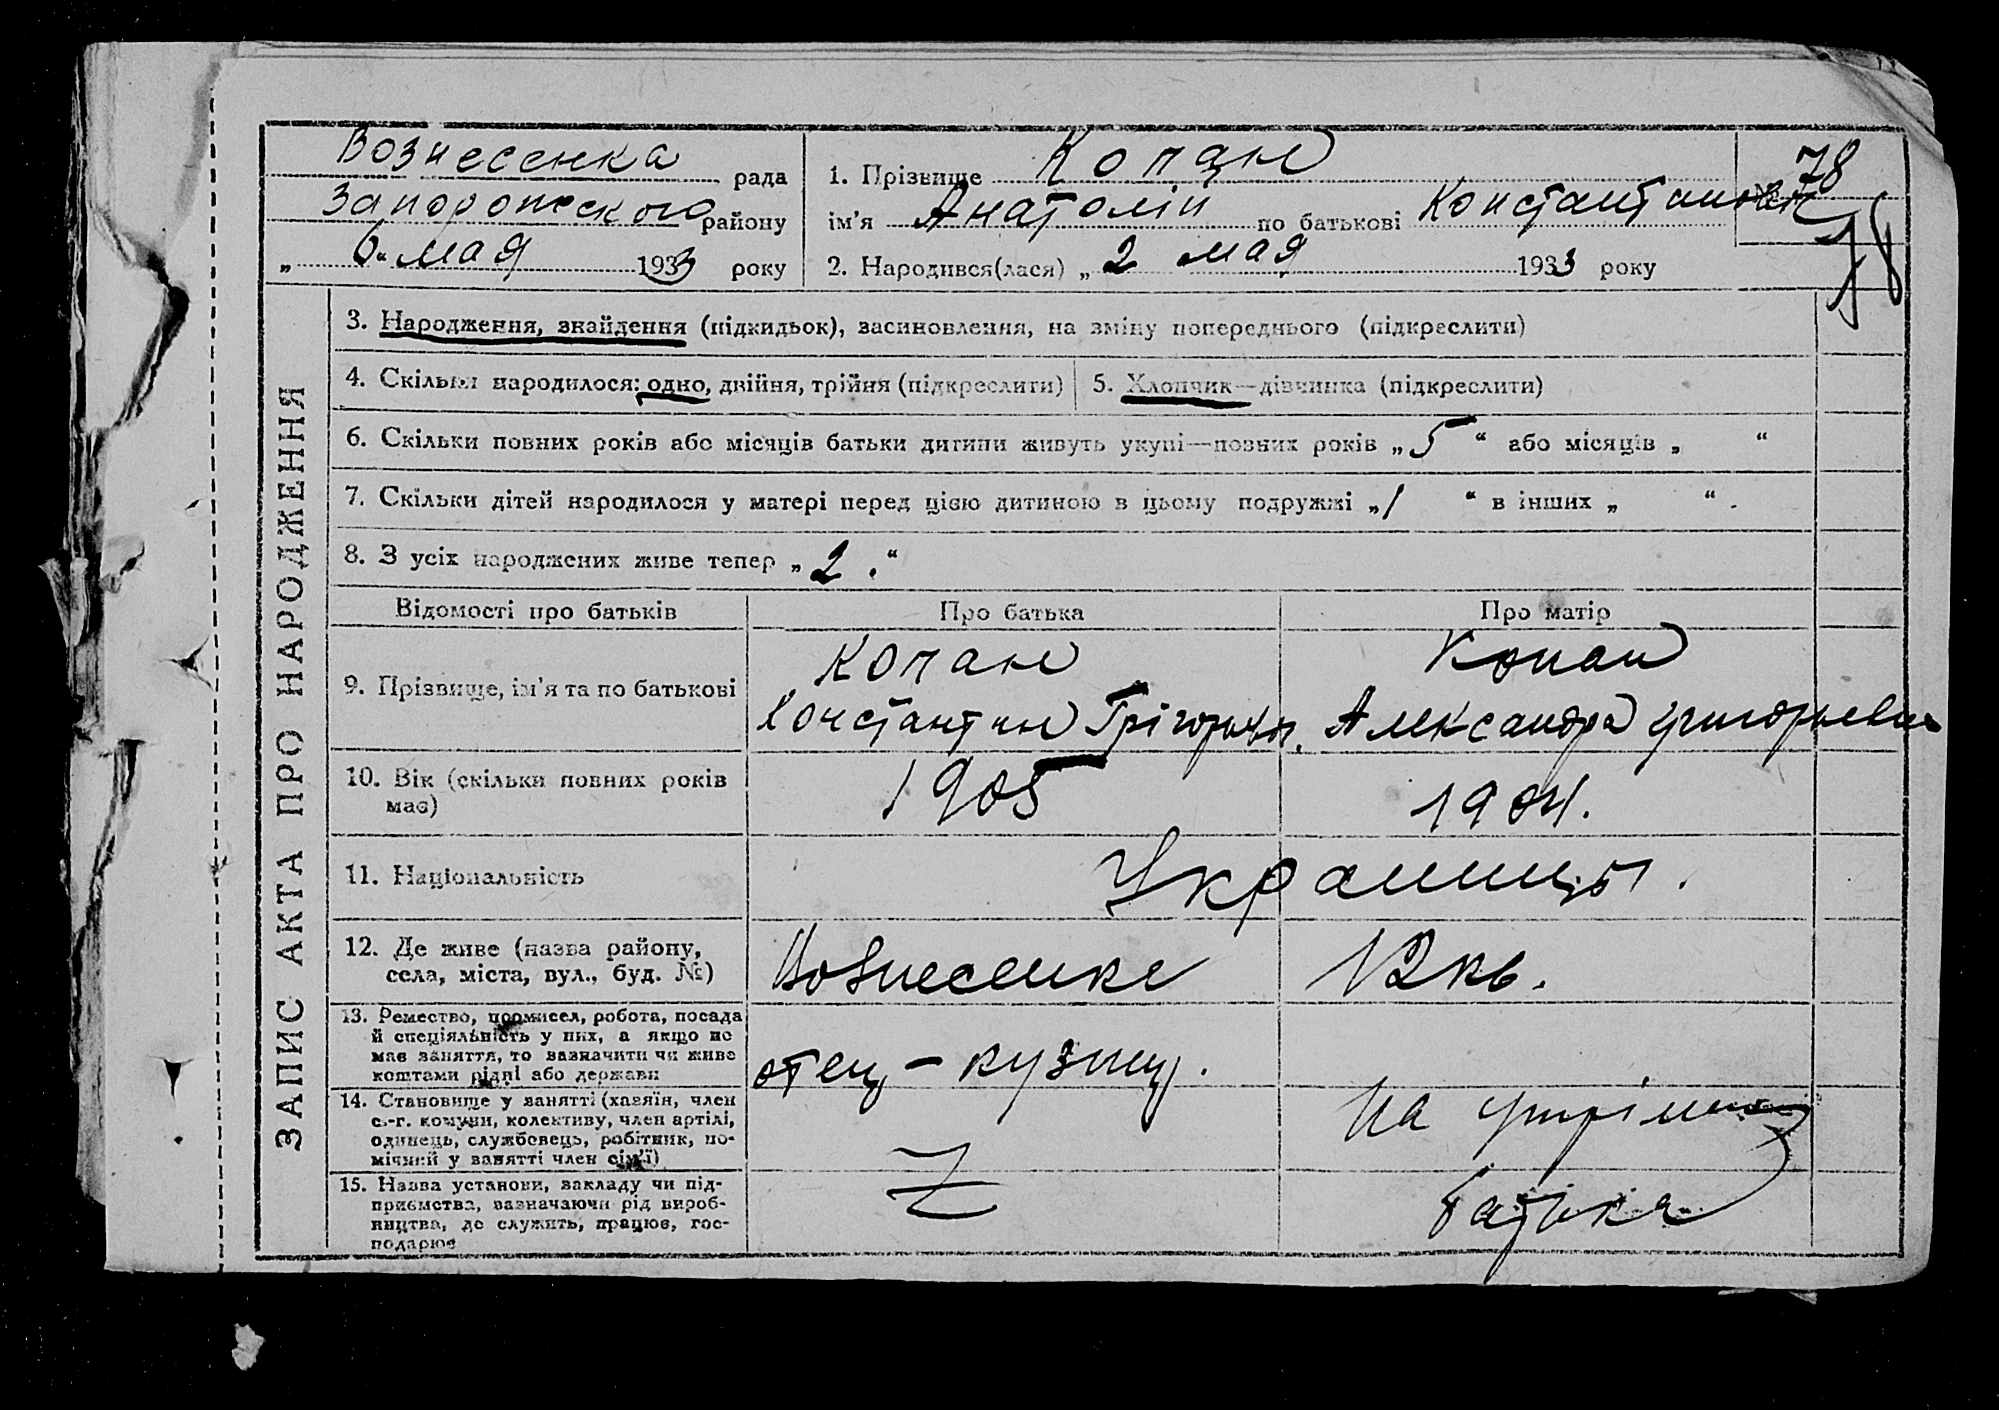 Вознесенка рада
Запорожского району
„ 6 мая 1933 року
1. Прізвище Копан
ім'я Анатолій по батькові Константинович
2. Народився(лася) „ 2 мая 1933 року
78
78
ЗАПИС АКТА ПРО НАРОДЖЕННЯ
3. Народження, знайдення (підкидьок), засиновлення, на зміну попереднього (підкреслити)
4. Скільки народилося: одно, двійня, трійня (підкреслити)
5. Хлопчик—дівчинка (підкреслити)
6. Скільки повних років або місяців батьки дитини живуть укупі—повних років „ 5 “ або місяців „ “
7. Скільки дітей народилося у матері перед цією дитиною в цьому подружжі „ 1 “ в інших „ “.
8. З усіх народжених живе тепер „ 2 . “
Відомості про батьків Про батька Про матір
9. Прізвище, ім'я та по батькові
Копан
Константин Грігорьев.
Копан
Александра Григорьевна
10. Вік (скільки повних років
має)
1905
1904.
11. Національність
Украинцы.
12. Де живе (назва району,
села, міста, вул., буд. №)
Вознесенке 12 кв.
13. Ремество, промисел, робота, посада
й спеціяльність у них, а якщо не
має заняття, то зазначити чи живе
коштами рідні або держави
отец – кузнец.
14. Становище у занятті (хазяїн, член
с.-г. комуни, колективу, член артілі,
одинець, службовець, робітник, по-
мічний у занятті член сім'ї)
На утрімании
батька
15. Назва установи, закладу чи під-
приємства, зазначаючи рід вироб-
ництва, де служить, працює, гос-
подарює